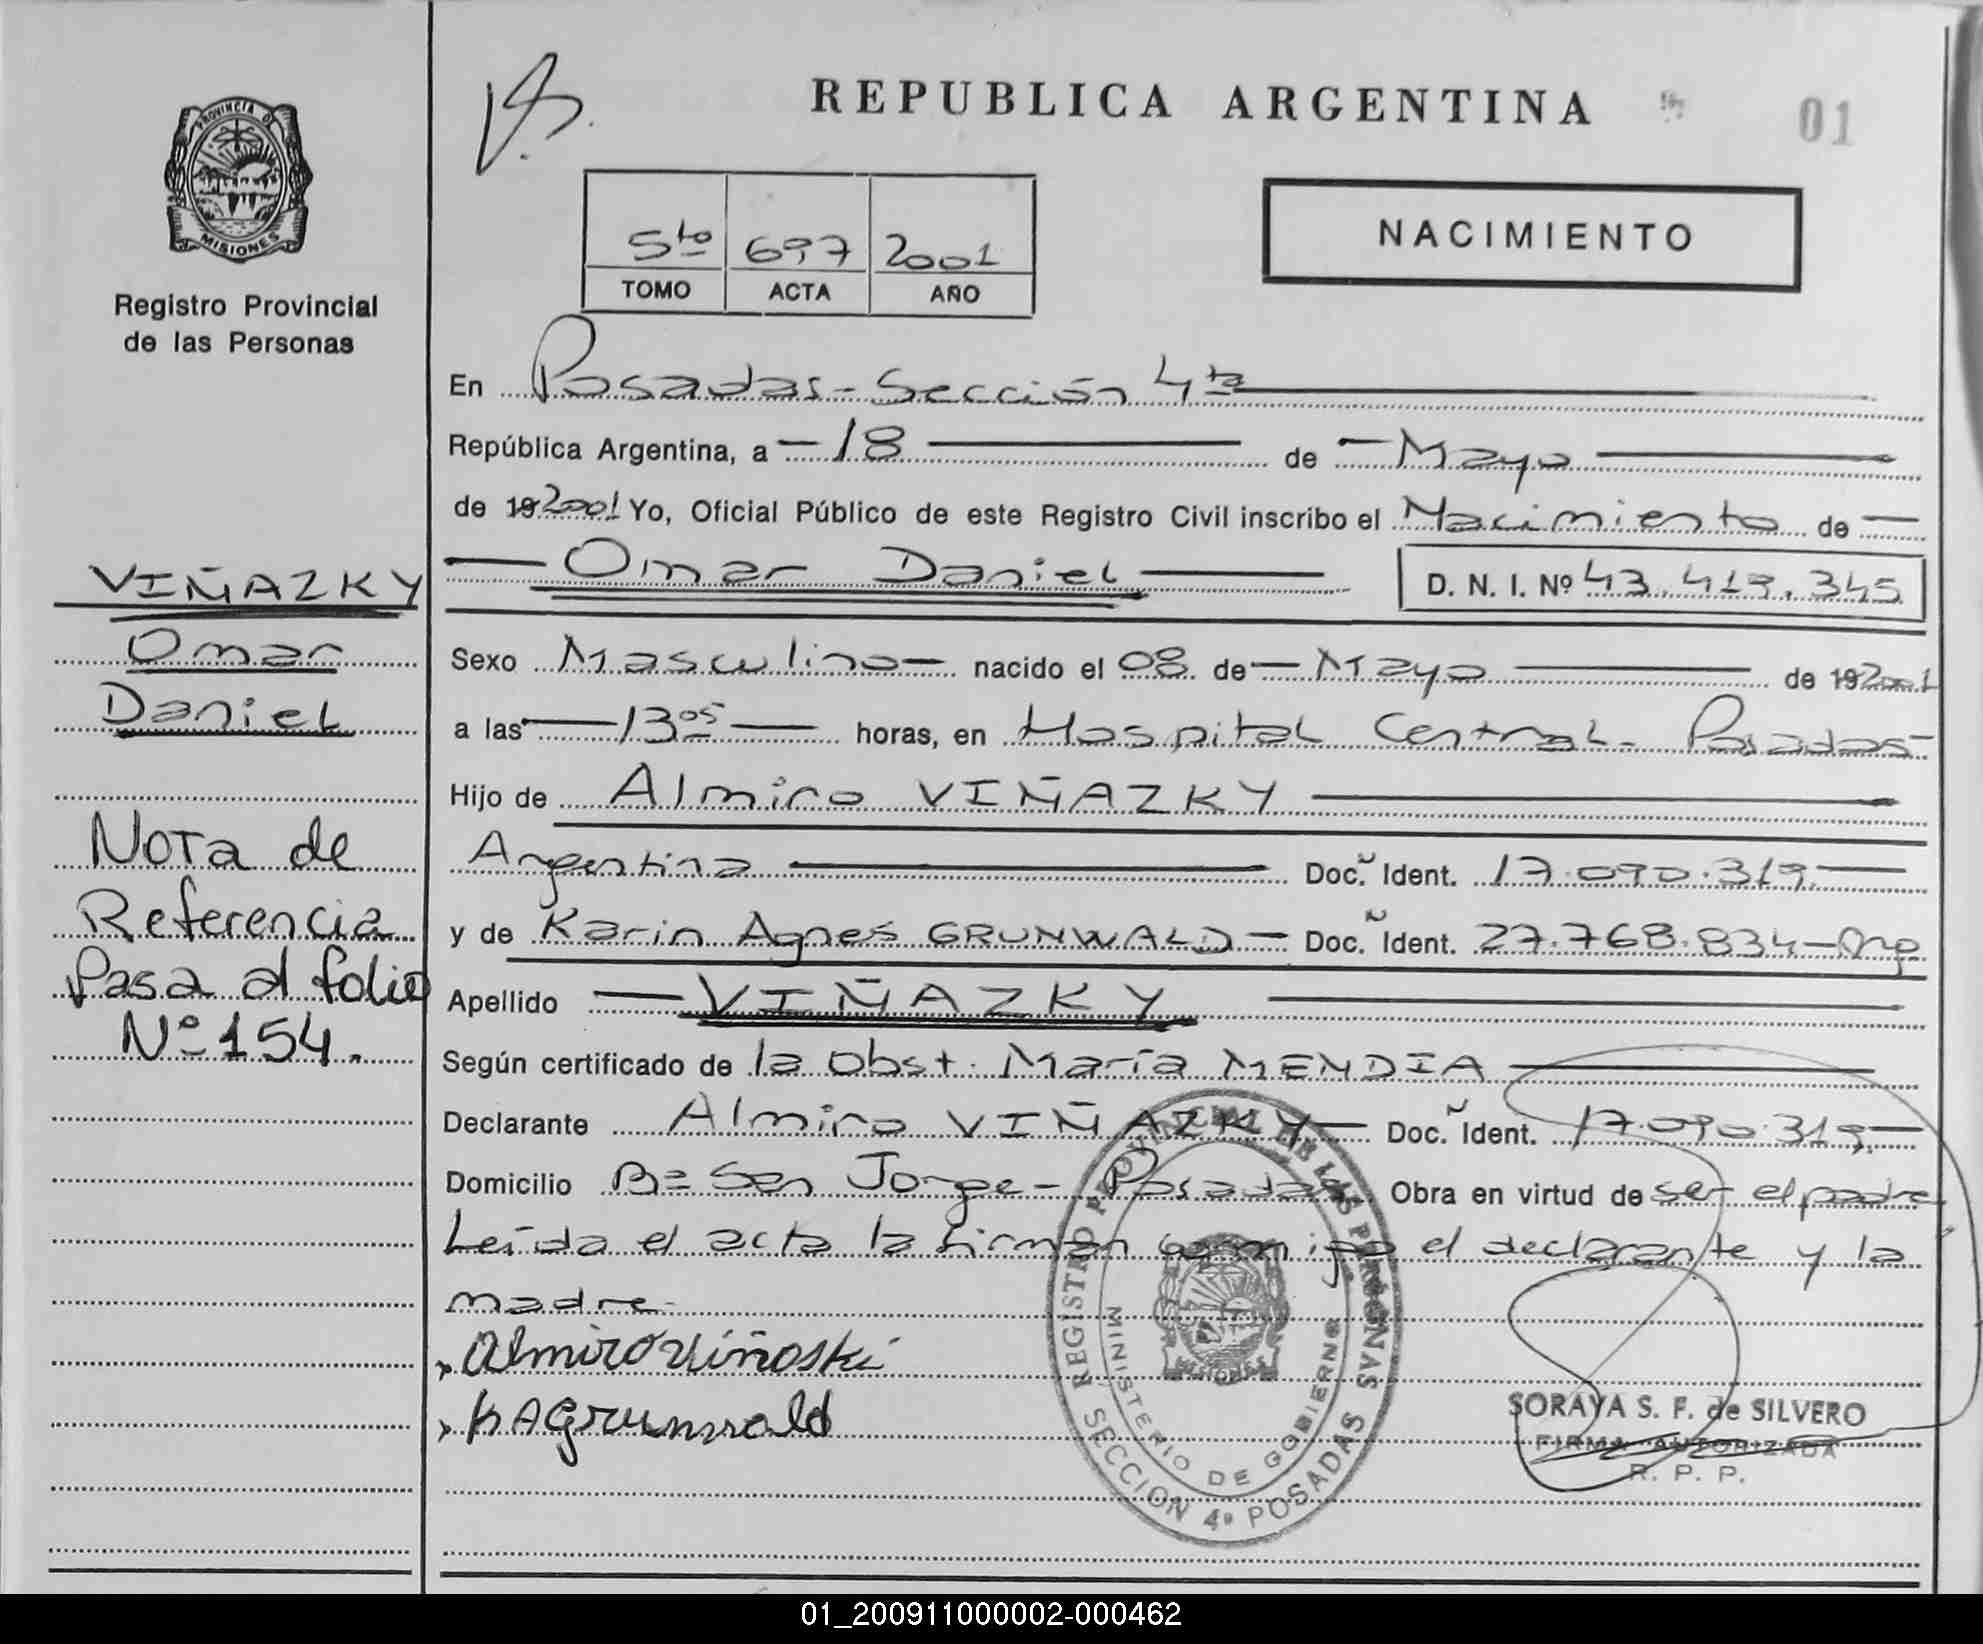 REPUBLICA ARGENTINA
01
PROVINCIA D
MISIONES
Registro Provincial
de las Personas
5to 697 2001
TOMO ACTA AÑO
NACIMIENTO
En Posadas - Sección 4ta
República Argentina, a 18 de Mayo
de 192001 Yo, Oficial Público de este Registro Civil inscribo el Nacimiento de
Omar Daniel D. N. I. Nº 43.419.345
VIÑAZKY
Omar
Daniel
Nota de
Referencia
Pasa al folio
Nº 154.
Sexo Masculino nacido el 08 de Mayo de 192001
a las 13 05 horas, en Hospital Central - Posadas
Hijo de Almiro VIÑAZKY
Argentina Doc. Ident. 17.090.319
y de Karin Agnes GRUNWALD Doc. Ident. 27.768.834 - Arg
Apellido VIÑAZKY
Según certificado de la Obst. María MENDIA
Declarante Almiro VIÑAZKY Doc. Ident. 17.090.319
Domicilio Bº San Jorge - Posadas Obra en virtud de ser el padre
Leída el acta la firman conmigo el declarante y la
madre.
Almiro Viñoski
K A Grunwald
REGISTRO PROVINCIAL DE LAS PERSONAS
MINISTERIO DE GOBIERNO
MISIONES
SECCION 4º POSADAS
SORAYA S. F. de SILVERO
FIRMA AUTORIZADA
R. P. P.
01_200911000002-000462